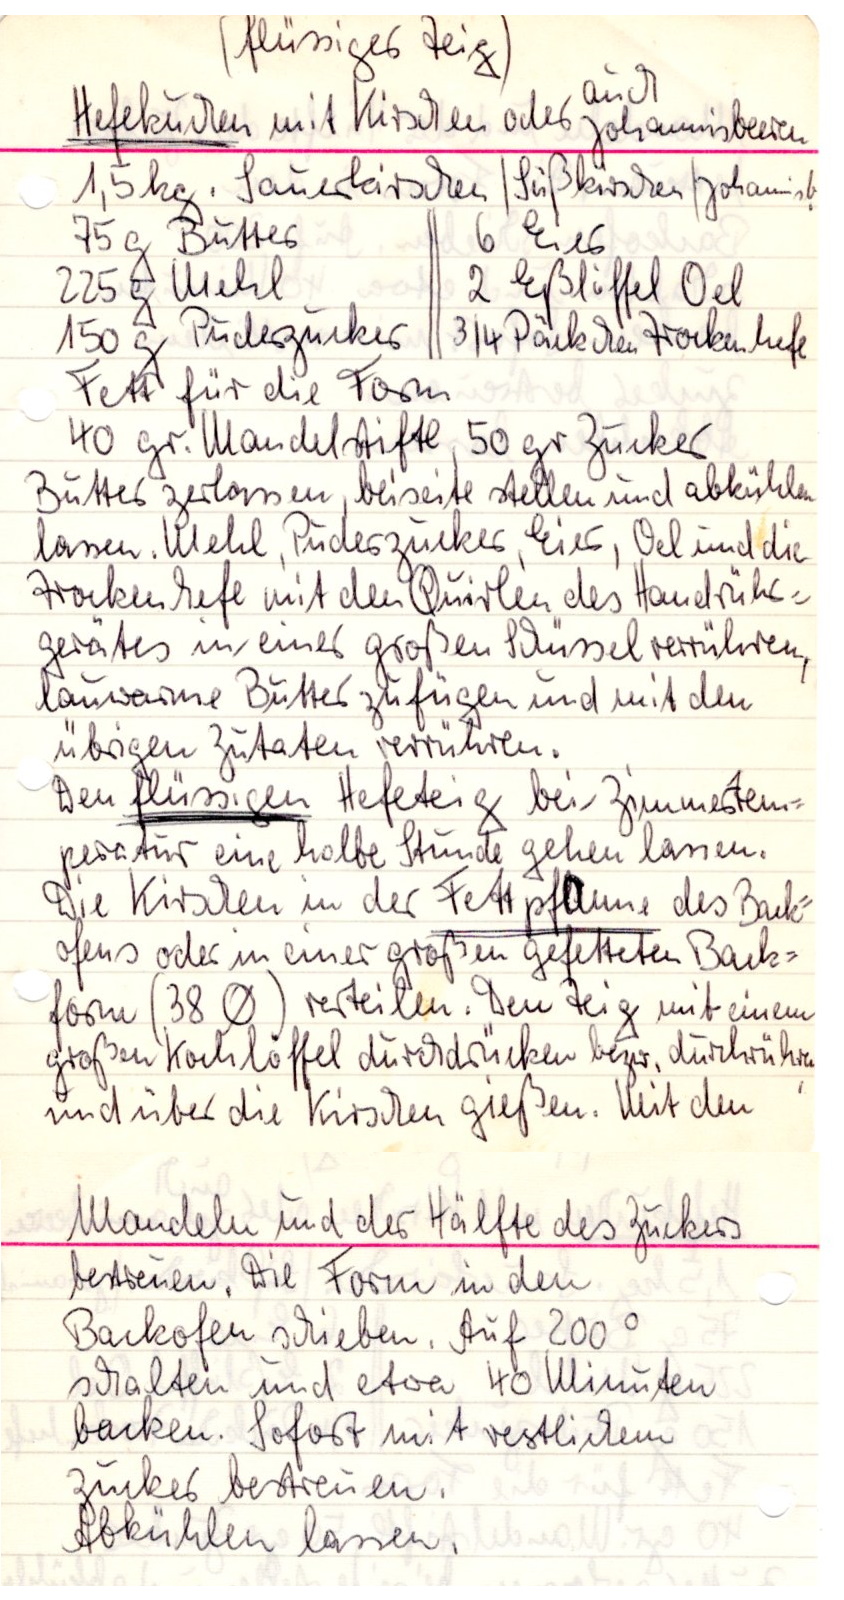 (flüssiger Teig)
auch
Hefekuchen mit Kirschen oder Johannisbeeren
1,5 kg. Sauerkirschen / Süßkirschen / Johannisb.
75 g Butter || 6 Eier
225 g Mehl || 2 Eßlöffel Oel
150 g Puderzucker || 3/4 Päckchen Trockenhefe
Fett für die Form
40 gr. Mandelstifte, 50 gr Zucker
Butter zerlassen, beiseite stellen und abkühlen
lassen. Mehl, Puderzucker, Eier, Oel und die
Trockenhefe mit den Quirlen des Handrühr=
gerätes in einer großen Schüssel verrühren,
lauwarme Butter zufügen und mit den
übrigen Zutaten verrühren.
Den flüssigen Hefeteig bei Zimmertem=
peratur eine halbe Stunde gehen lassen.
Die Kirschen in der Fettpfanne des Back=
ofens oder in einer großen gefetteten Back=
form (38 Ø) verteilen. Den Teig mit einem
großen Kochlöffel durchdrücken bezw. durchrühren
und über die Kirschen gießen. Mit den
Mandeln und der Hälfte des Zuckers
bestreuen. Die Form in den
Backofen schieben. Auf 200°
schalten und etwa 40 Minuten
backen. Sofort mit restlichem
Zucker bestreuen.
Abkühlen lassen.